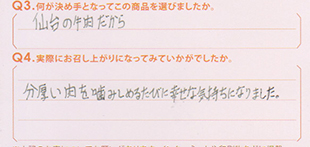 Q3.何が決め手となってこの商品を選びましたか。
仙台の牛肉だから
Q4.実際にお召し上がりになってみていかがでしたか。
分厚い肉を噛みしめるたびに幸せな気持ちになりました。